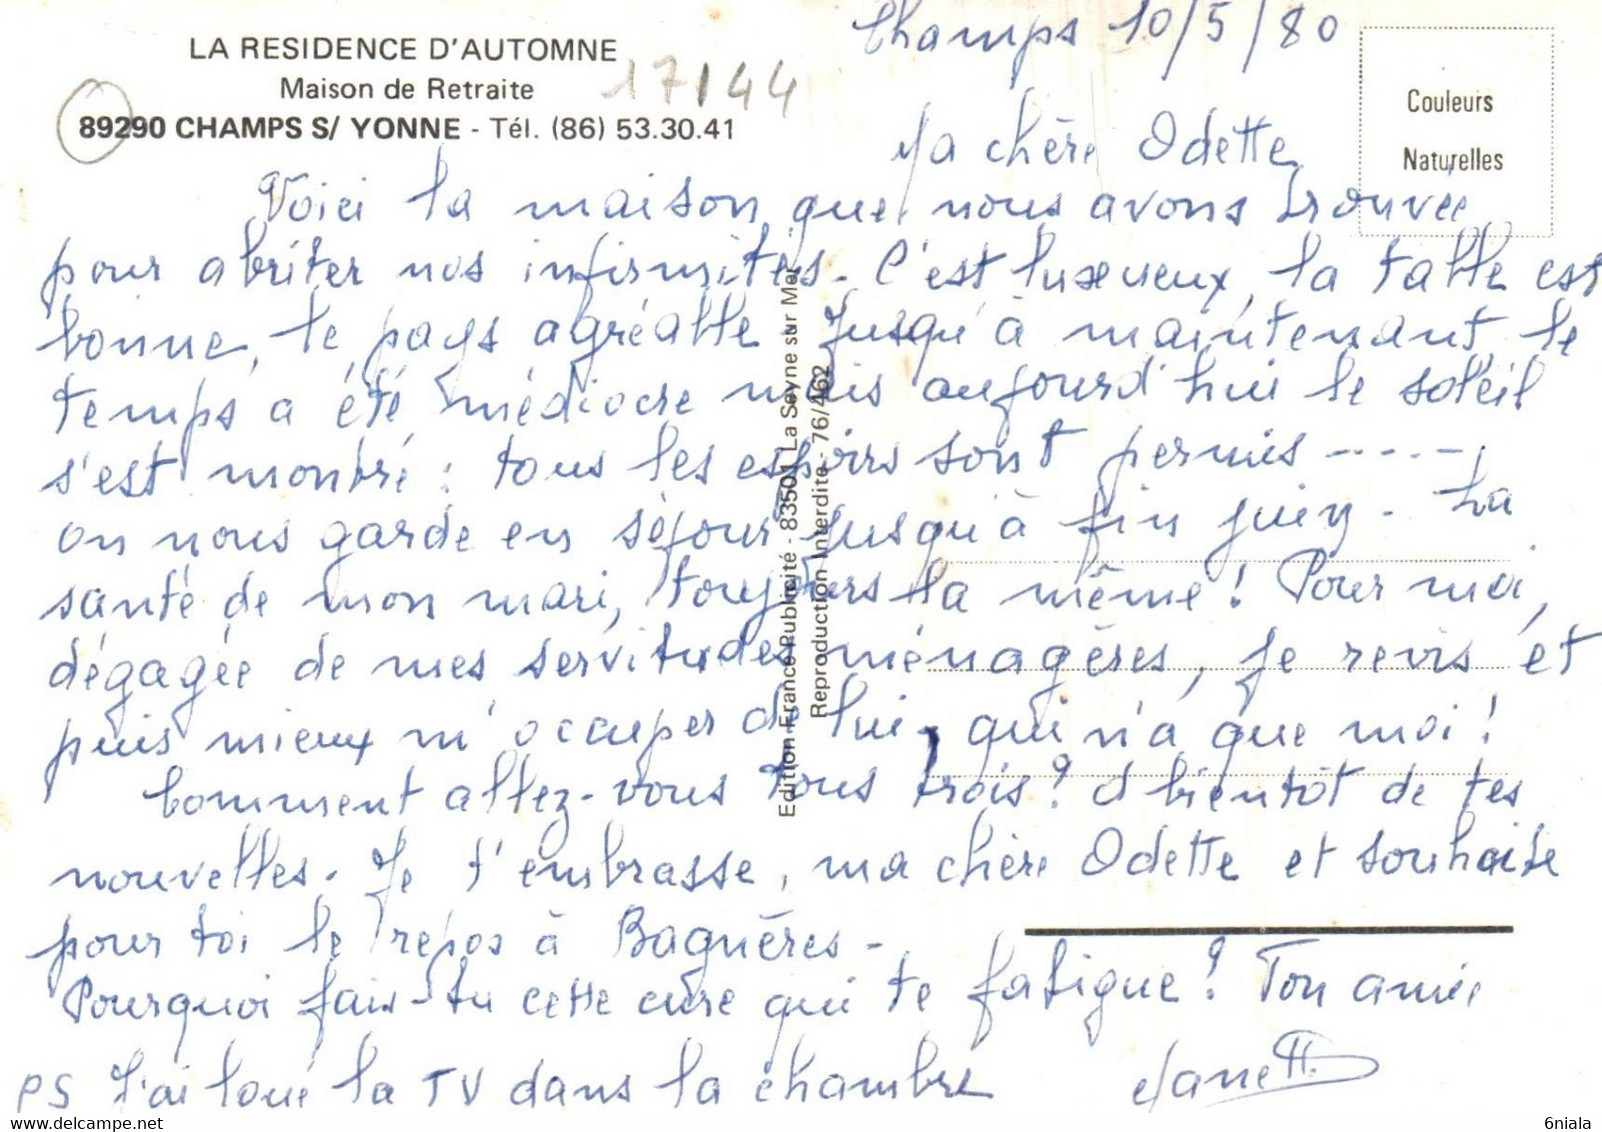 LA RESIDENCE D'AUTOMNE
Maison de Retraite
89290 CHAMPS S/ YONNE - Tél. (86) 53.30.41
17144
Champs 10/5/80
Couleurs
Naturelles
Ma chère Odette
Voici la maison que nous avons trouvée
pour abriter nos infirmités - C'est luxueux, la table est
bonne, le pays agréable. Jusqu'à maintenant le
temps a été médiocre mais aujourd'hui le soleil
s'est montré : tous les espoirs sont permis -----
on nous garde en séjour jusqu'à fin juin - La
santé de mon mari, toujours la même ! Pour moi,
dégagée de mes servitudes ménagères, je revis et
puis mieux m'occuper de lui, qui n'a que moi !
Comment allez-vous tous trois ? A bientôt de tes
nouvelles. Je t'embrasse, ma chère Odette et souhaite
pour toi le repos à Bagnères -
Pourquoi fais-tu cette cure qui te fatigue ? Ton amie
Janett
PS J'ai loué la TV dans la chambre
Edition France Publicité - 83501 La Seyne sur Mer
Reproduction Interdite - 76/462
6niala